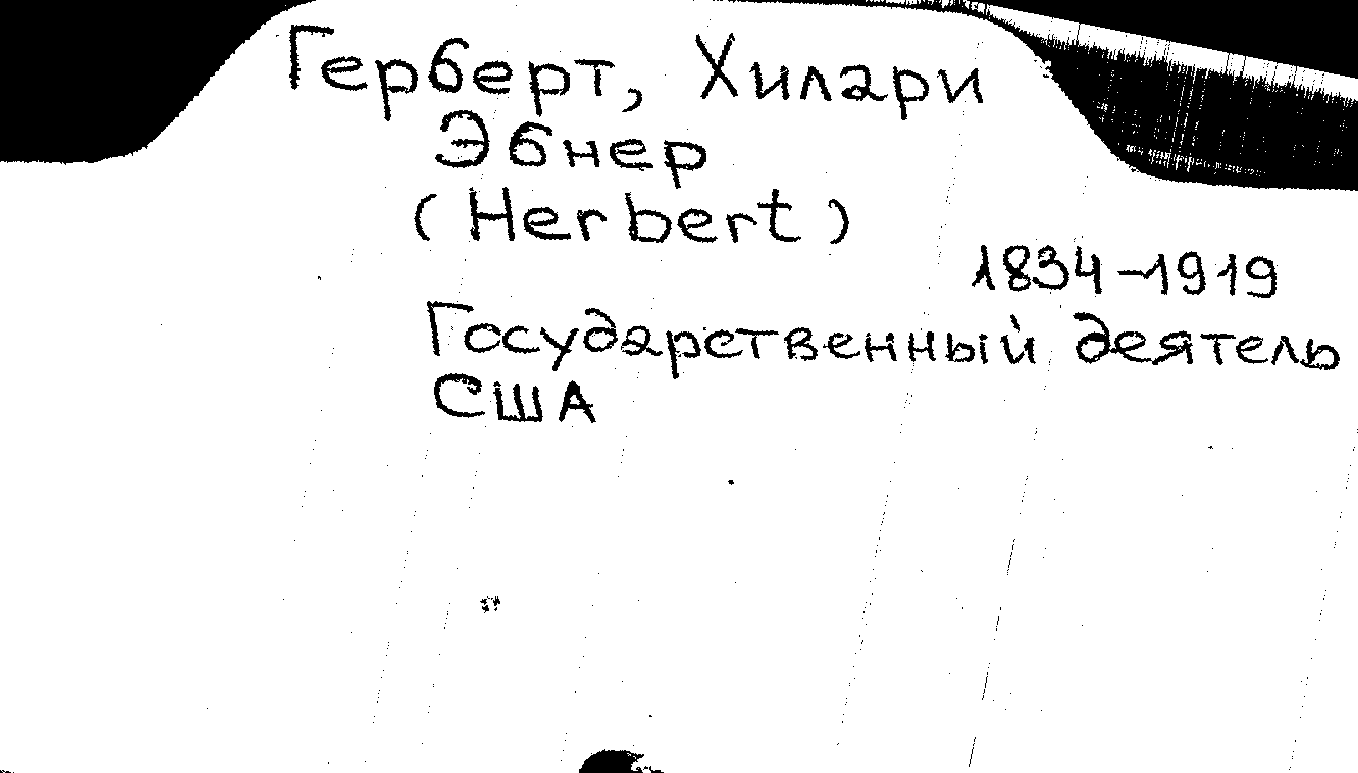 Герберт, Хилари
Эбнер
(Herbert)
1834-1919
Государственный деятель
США